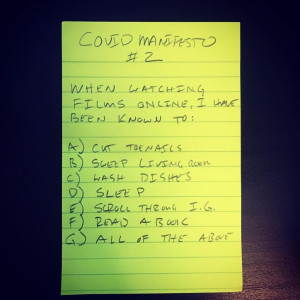 COVID MANIFESTO
#2
WHEN WATCHING
FILMS ONLINE, I HAVE
BEEN KNOWN TO:
A) CUT TOENAILS
B) SWEEP LIVING ROOM
C) WASH DISHES
D) SLEEP
E) SCROLL THROUGH I.G.
F) READ A BOOK
G) ALL OF THE ABOVE